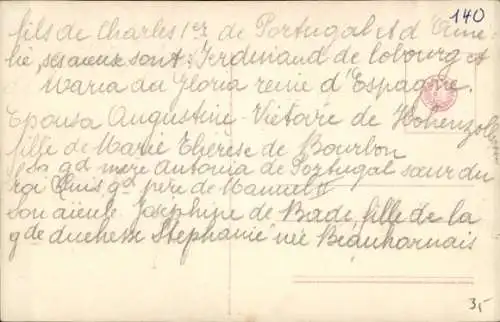 140
fils de Charles 1er de Portugal et d'Amé-
lie, ses aieux sont: Ferdinand de Cobourg et
Maria da Gloria reine d'Espagne.
Epousa Augustine-Victoire de Hohenzol
fille de Marie Thérèse de Bourbon
Sa gd mère Antonia de Portugal sœur du
roi Luis gd père de Manuel II
Son aïeule Josephine de Bade fille de la
gde duchesse Stephanie née Beauharnais
3,-